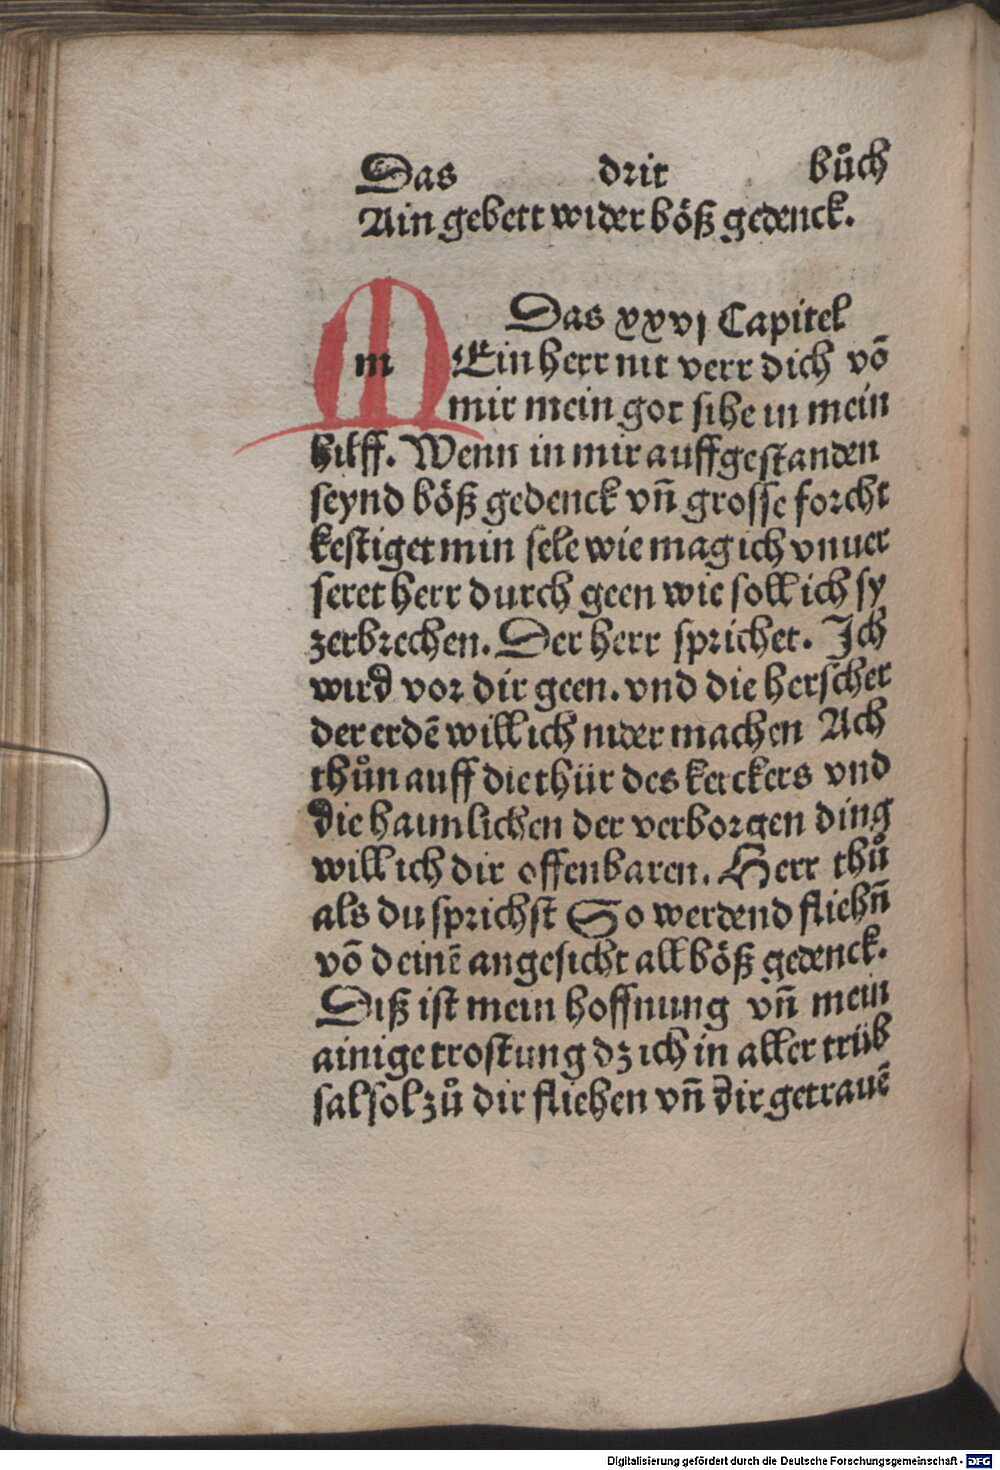 Das drit bůch
Ain gebett wider böß gedenck.
Das xxvj Capitel
m Ein herr nit verr dich vō
mir mein got sihe in mein
hilff. Wenn in mir auffgestanden
seynd böß gedenck vn̄ grosse forcht
kestiget min sele wie mag ich vnuer
seret herr durch geen wie soll ich sy
zerbrechen. Der herr sprichet. Ich
wird vor dir geen. vnd die herscher
der erdē will ich nider machen Ach
thůn auff die thür des kerckers vnd
die haimlichen der verborgen ding
will ich dir offenbaren. Herr thů
als du sprichst So werdend fliehn̄
vō deinē angesicht all böß gedenck.
Diß ist mein hoffnung vn̄ mein
ainige trostung dz ich in aller trüb
sal sol zů dir fliehen vn̄ dir getrauē
Digitalisierung gefördert durch die Deutsche Forschungsgemeinschaft - DFG